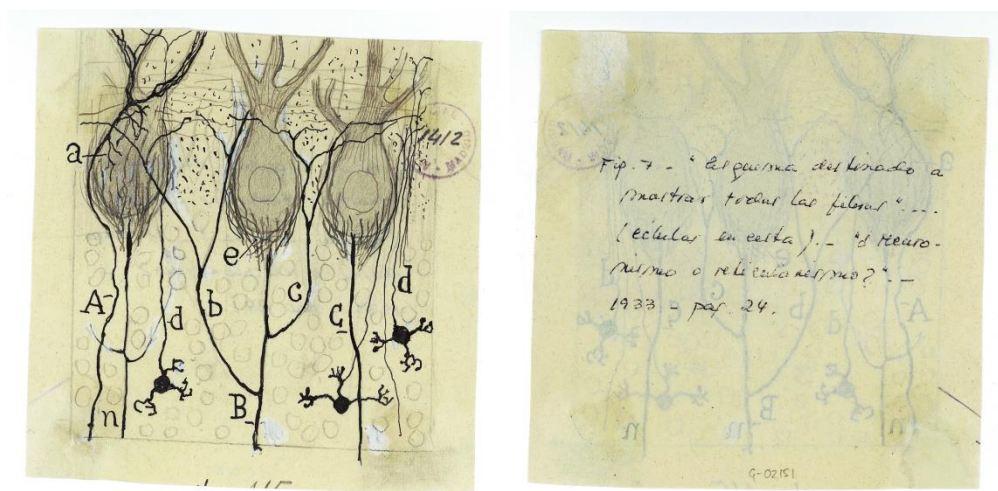 1412
MADRID
a
e
A
d
b
c
C
d
B
n
Fig. 7. - "Esquema destinado a
mostrar todas las fibras"....
(células en cesta). - "¿Neuro-
nismo o reticularismo?". -
1933 - pág. 24.
G-02151